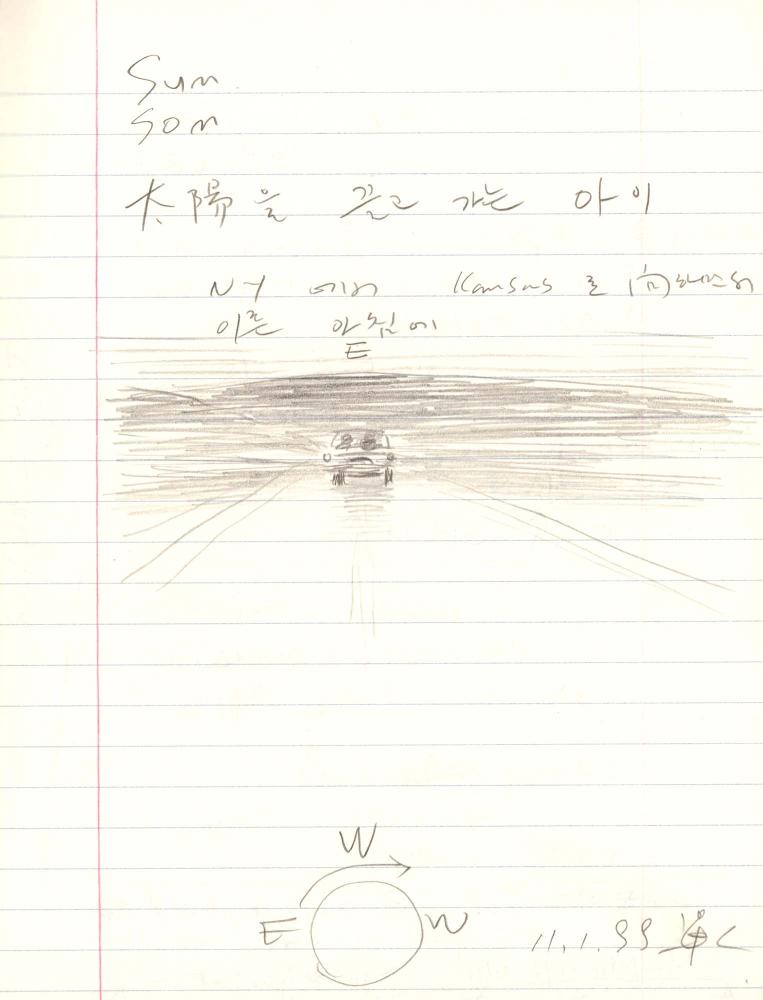 Sun
Son
太陽을 끌고 가는 아이
NY 에서 Kansas 로 向하면서
이른 아침에
E
W
E W
11.1.99